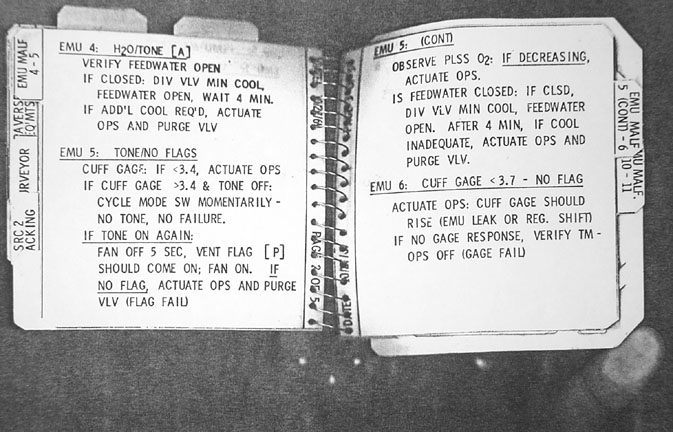 EMU MALF
4 - 5
TRAVERSE
EQ/MTS
SRC 2
EMU 4: H2O/TONE [A]
VERIFY FEEDWATER OPEN
IF CLOSED: DIV VLV MIN COOL,
FEEDWATER OPEN, WAIT 4 MIN.
IF ADD'L COOL REQ'D, ACTUATE
OPS AND PURGE VLV
EMU 5: TONE/NO FLAGS
CUFF GAGE: IF <3.4, ACTUATE OPS
IF CUFF GAGE >3.4 & TONE OFF:
CYCLE MODE SW MOMENTARILY -
NO TONE, NO FAILURE.
IF TONE ON AGAIN:
FAN OFF 5 SEC, VENT FLAG [P]
SHOULD COME ON; FAN ON. IF
NO FLAG, ACTUATE OPS AND PURGE
VLV (FLAG FAIL)
PAGE 2 OF 5
DATE
EMU 5: (CONT)
OBSERVE PLSS O2: IF DECREASING,
ACTUATE OPS.
IS FEEDWATER CLOSED: IF CLSD,
DIV VLV MIN COOL, FEEDWATER
OPEN. AFTER 4 MIN, IF COOL
INADEQUATE, ACTUATE OPS AND
PURGE VLV.
EMU 6: CUFF GAGE <3.7 - NO FLAG
ACTUATE OPS: CUFF GAGE SHOULD
RISE (EMU LEAK OR REG. SHIFT)
IF NO GAGE RESPONSE, VERIFY TM-
OPS OFF (GAGE FAIL)
EMU MALF
5 (CONT) - 6
MALF.
10 - 11